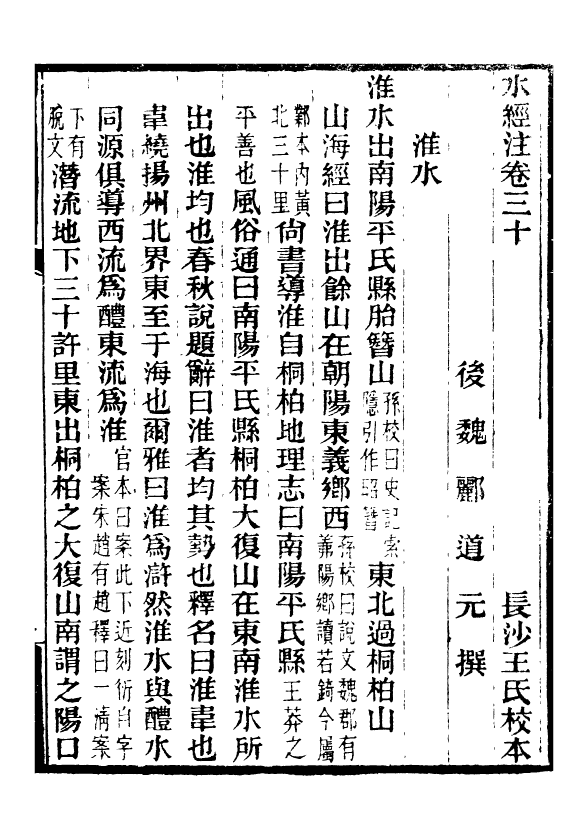 水經注卷三十　長沙王氏校本
後魏酈道元撰
淮水
淮水出南陽平氏縣胎簪山孫校曰史記索隱引作昭簪東北過桐柏山
山海經曰淮出餘山在朝陽東義鄉西孫校曰說文魏郡有䣊陽鄉讀若錡今屬
鄴本內黃北三十里尙書導淮自桐柏地理志曰南陽平氏縣王莽之
平善也風俗通曰南陽平氏縣桐柏大復山在東南淮水所
出也淮均也春秋說題辭曰淮者均其勢也釋名曰淮韋也
韋繞揚州北界東至于海也爾雅曰淮爲滸然淮水與醴水
同源俱導西流爲醴東流爲淮官本曰案此下近刻衍自字案朱趙有趙釋曰一淸案
下有脫文潛流地下三十許里東出桐柏之大復山南謂之陽口